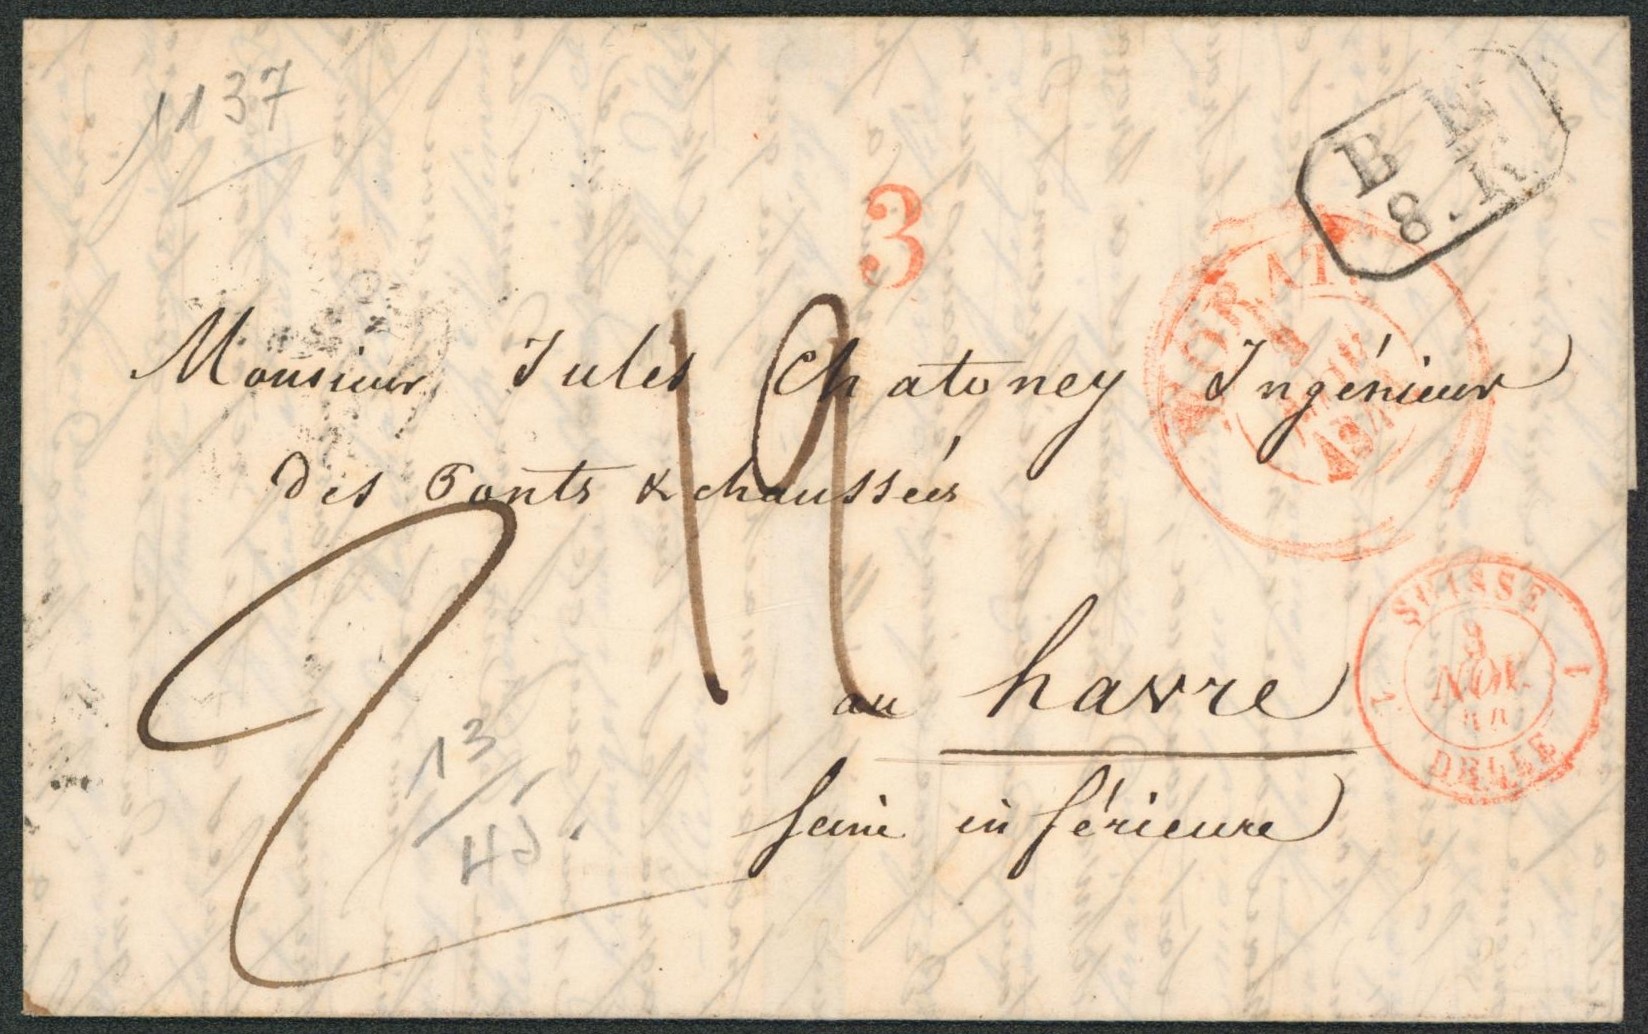 1137
B E
8.K
3
MORAT
1
184
Monsieur Jules Chatoney Ingénieur
des Ponts & chaussées
19
2
au havre
SUISSE
3
NOV.
44
1 1
DELLE
13
45
Seine inférieure